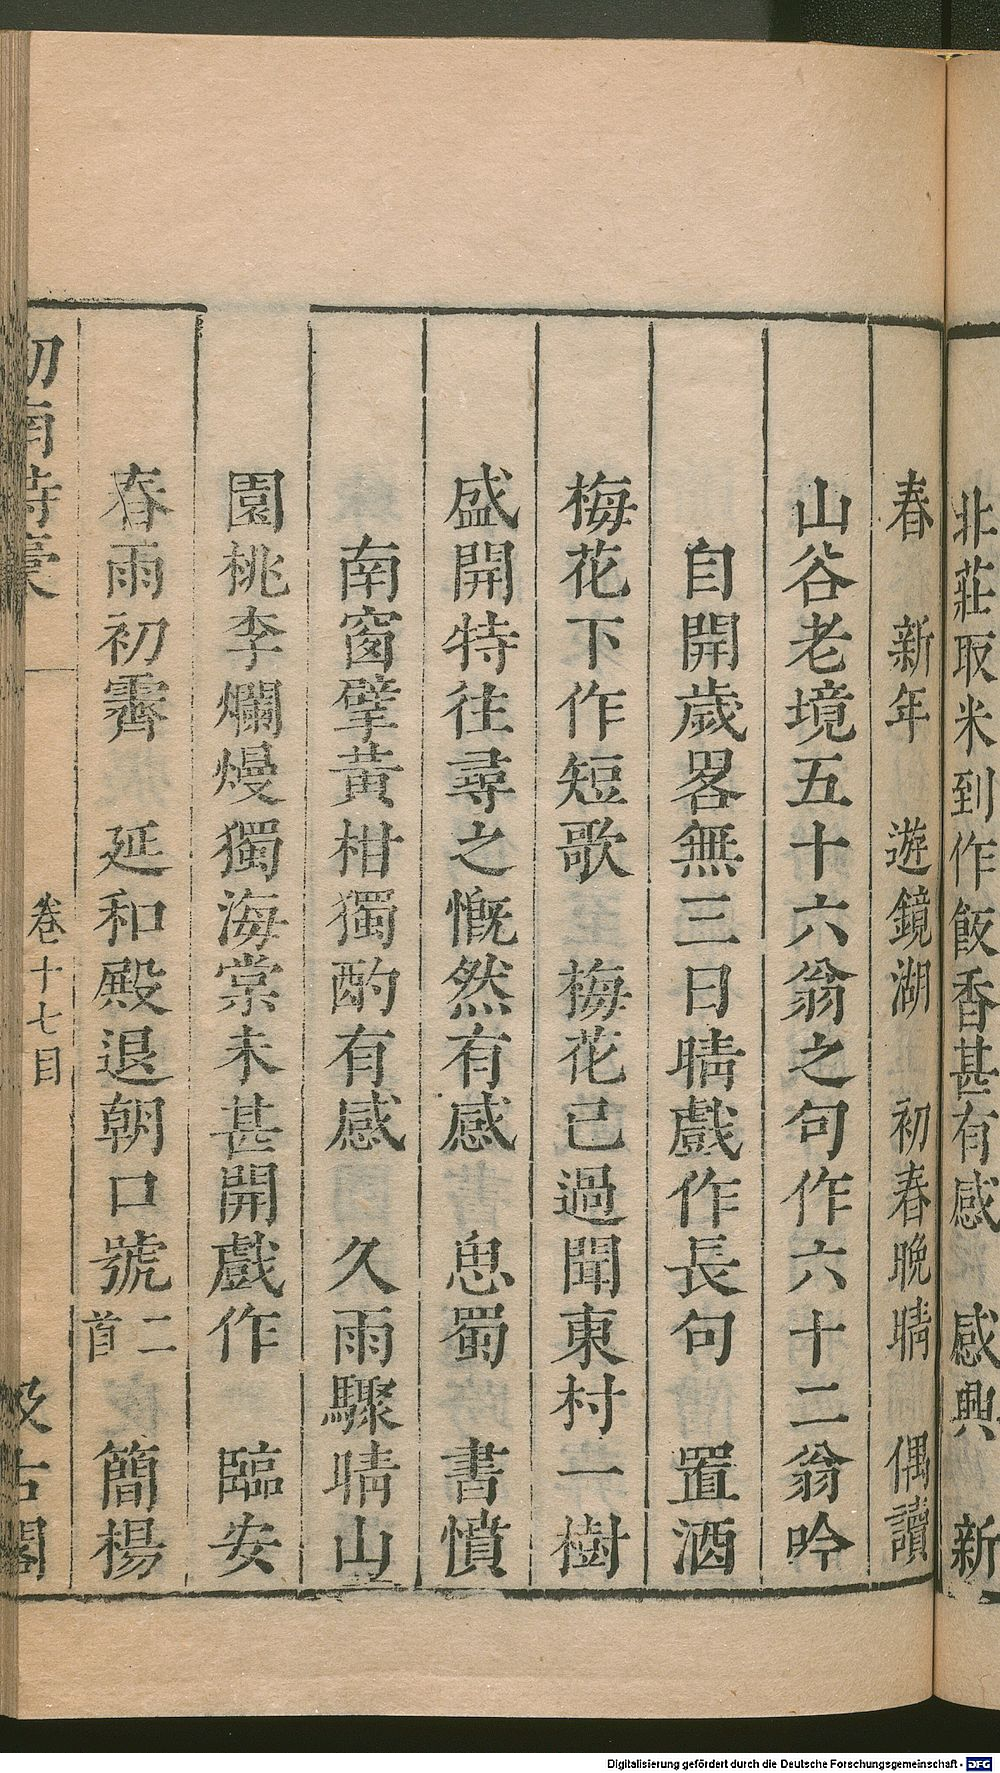 北莊取米到作飯香甚有感　感興　新
春　新年　遊鏡湖　初春晚晴　偶讀
山谷老境五十六翁之句作六十二翁吟
自開歲畧無三日晴戲作長句　置酒
梅花下作短歌　梅花已過聞東村一樹
盛開特往尋之慨然有感　思蜀　書憤
南窗擘黃柑獨酌有感　久雨驟晴山
園桃李爛熳獨海棠未甚開戲作　臨安
春雨初霽　延和殿退朝口號二首　簡楊
劒南詩稾　卷十七目　汲古閣
Digitalisierung gefördert durch die Deutsche Forschungsgemeinschaft - DFG